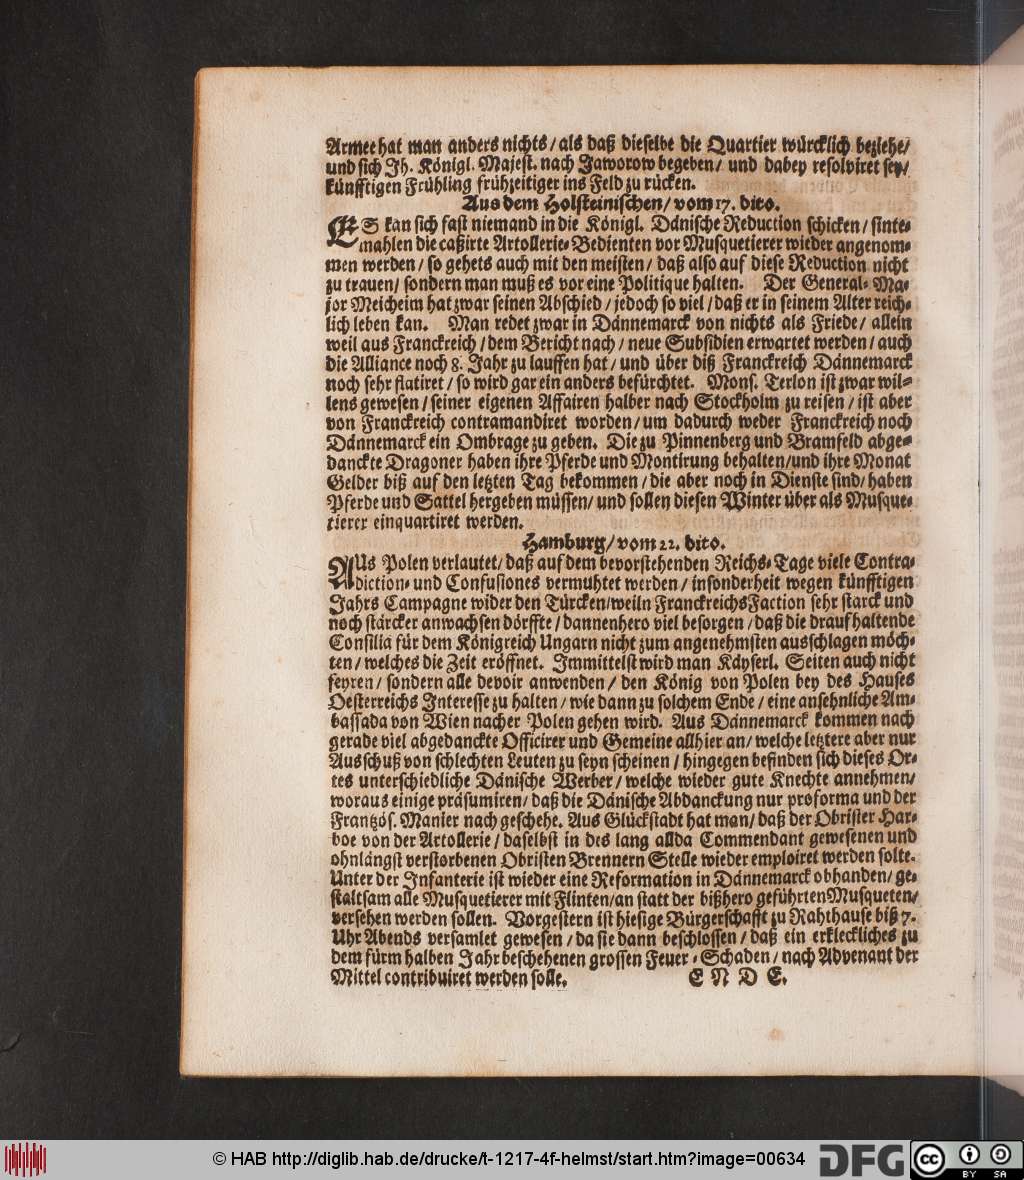 Armee hat man anders nichts / als daß dieselbe die Quartier würcklich beziehe /
und sich Jh. Königl. Majest. nach Jaworow begeben / und dabey resolviret sey /
künfftigen Frühling frühzeitiger ins Feld zu rücken.
Aus dem Holsteinischen / vom 17. dito.
ES kan sich fast niemand in die Königl. Dänische Reduction schicken / sinte-
mahlen die caßirte Artollerie-Bedienten vor Musquetierer wieder angenom-
men werden / so gehets auch mit den meisten / daß also auf diese Reduction nicht
zu trauen / sondern man muß es vor eine Politique halten. Der General-Ma-
jor Meicheim hat zwar seinen Abschied / jedoch so viel / daß er in seinem Alter reich-
lich leben kan. Man redet zwar in Dännemarck von nichts als Friede / allein
weil aus Franckreich / dem Bericht nach / neue Subsidien erwartet werden / auch
die Alliance noch 8. Jahr zu lauffen hat / und über diß Franckreich Dännemarck
noch sehr flatiret / so wird gar ein anders befürchtet. Mons. Terlon ist zwar wil-
lens gewesen / seiner eigenen Affairen halber nach Stockholm zu reisen / ist aber
von Franckreich contramandiret worden / um dadurch weder Franckreich noch
Dännemarck ein Ombrage zu geben. Die zu Pinnenberg und Bramfeld abge-
danckte Dragoner haben ihre Pferde und Montirung behalten / und ihre Monat
Gelder biß auf den letzten Tag bekommen / die aber noch in Dienste sind / haben
Pferde und Sattel hergeben müssen / und sollen diesen Winter über als Musque-
tierer einquartiret werden.
Hamburg / vom 22. dito.
AUs Polen verlautet / daß auf dem bevorstehenden Reichs-Tage viele Contra-
diction- und Confusiones vermuhtet werden / insonderheit wegen künfftigen
Jahrs Campagne wider den Türcken / weiln Franckreichs Faction sehr starck und
noch stärcker anwachsen dörffte / dannenhero viel besorgen / daß die drauf haltende
Consilia für dem Königreich Ungarn nicht zum angenehmsten ausschlagen möch-
ten / welches die Zeit eröffnet. Immittelst wird man Käyserl. Seiten auch nicht
feyren / sondern alle devoir anwenden / den König von Polen bey des Hauses
Oesterreichs Interesse zu halten / wie dann zu solchem Ende / eine ansehnliche Am-
bassada von Wien nacher Polen gehen wird. Aus Dännemarck kommen nach
gerade viel abgedanckte Officirer und Gemeine allhier an / welche letztere aber nur
Ausschuß von schlechten Leuten zu seyn scheinen / hingegen befinden sich dieses Or-
tes unterschiedliche Dänische Werber / welche wieder gute Knechte annehmen /
woraus einige präsumiren / daß die Dänische Abdanckung nur proforma und der
Frantzös. Manier nach geschehe. Aus Glückstadt hat man / daß der Obrister Har-
boe von der Artollerie / daselbst in des lang allda Commendant gewesenen und
ohnlängst verstorbenen Obristen Brennern Stelle wieder emploiret werden solte.
Unter der Infanterie ist wieder eine Reformation in Dännemarck obhanden / ge-
staltsam alle Musquetierer mit Flinten / an statt der bißhero geführten Musqueten /
versehen werden sollen. Vorgestern ist hiesige Bürgerschafft zu Rahthause biß 7.
Uhr Abends versamlet gewesen / da sie dann beschlossen / daß ein erkleckliches zu
dem fürm halben Jahr beschehenen grossen Feuer-Schaden / nach Advenant der
Mittel contribuiret werden solle. E N D E.
© HAB http://diglib.hab.de/drucke/t-1217-4f-helmst/start.htm?image=00634
DFG
cc BY SA